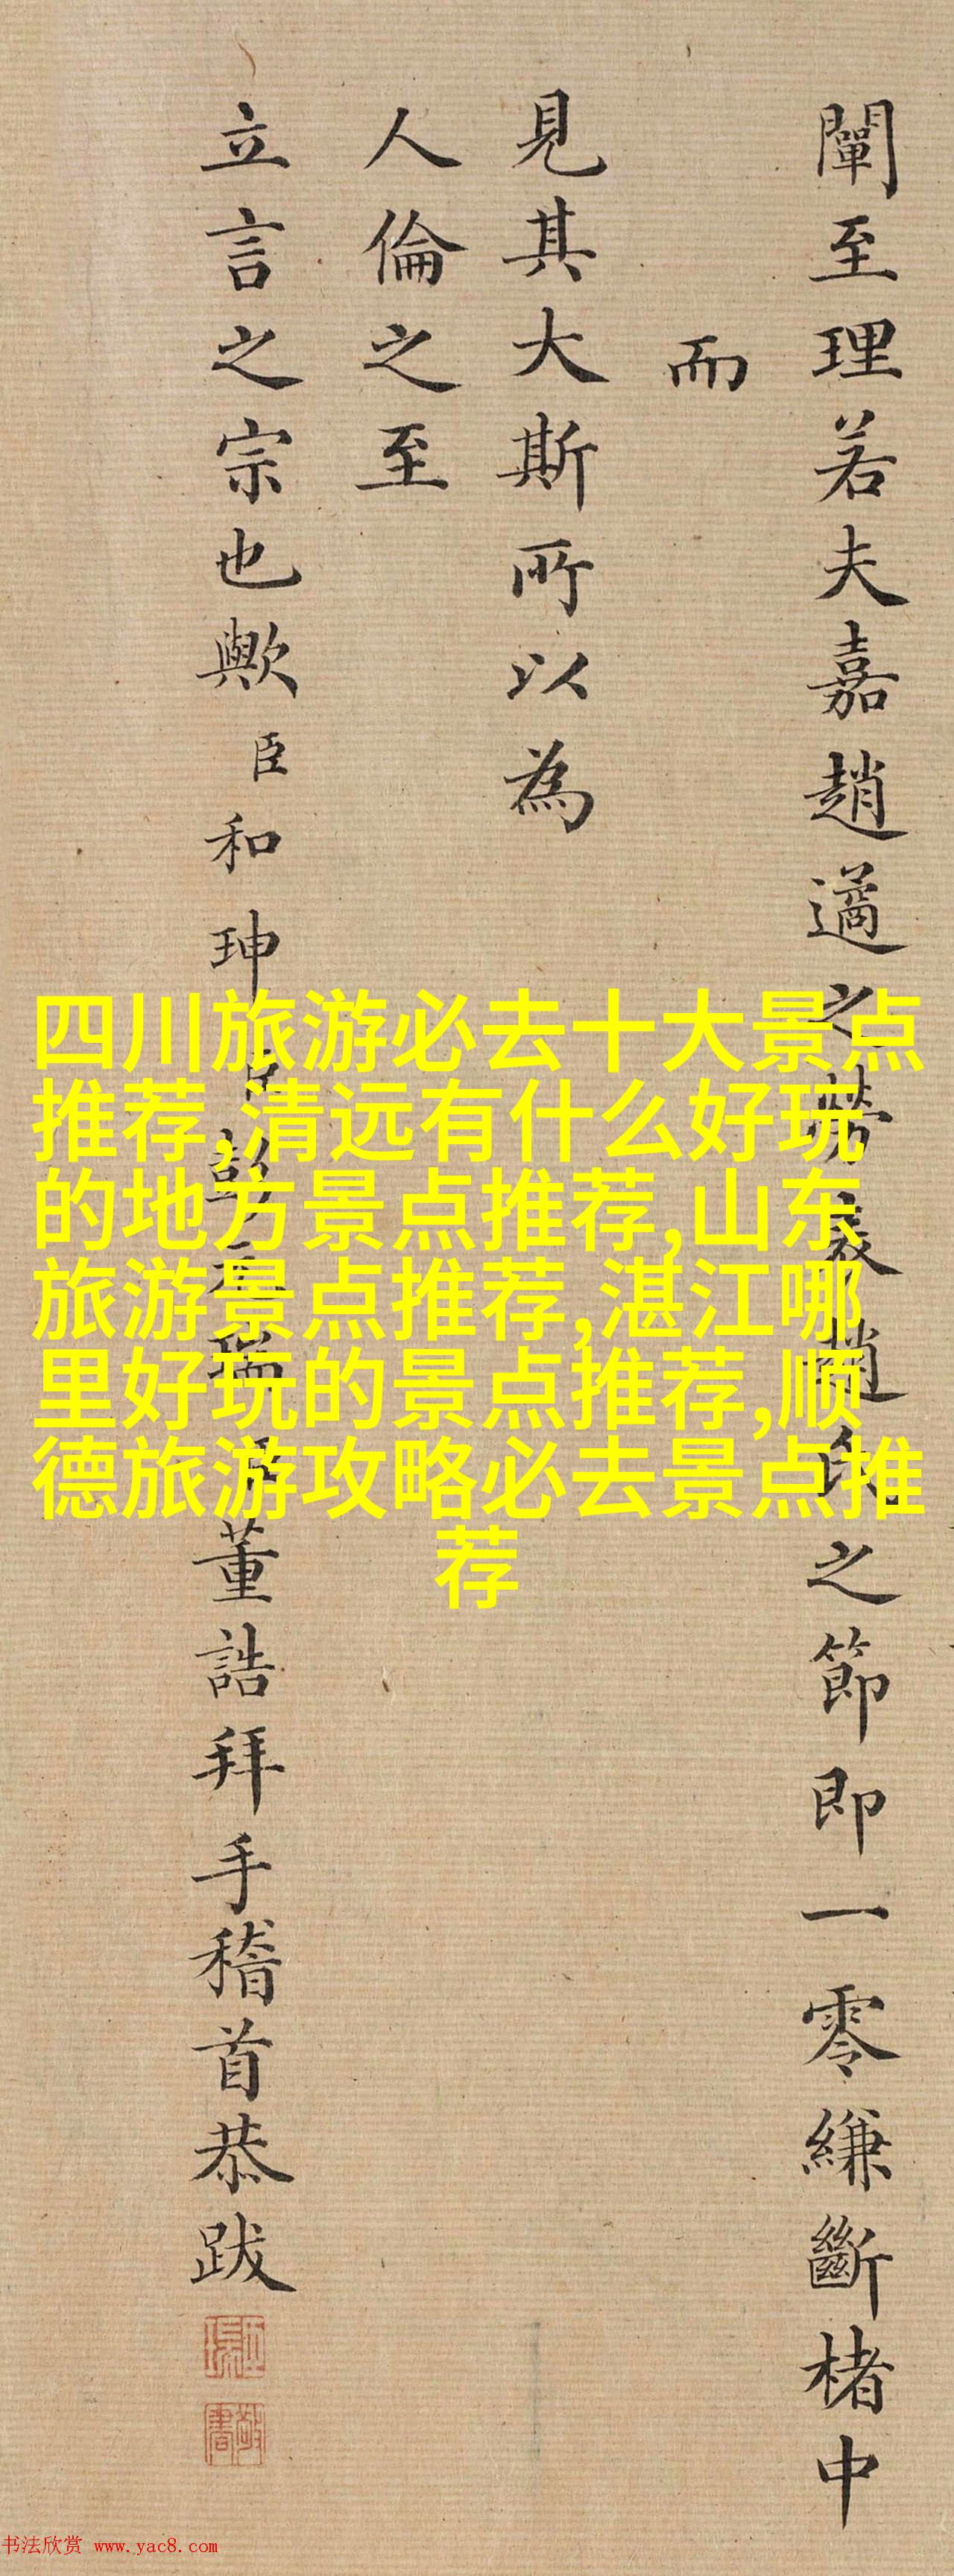 闡至理若夫嘉趙邁之勞表趙氏之節即一零縑斷楮中
而
見其大斯所以為
人倫之至
立言之宗也歟臣和珅臣彭元瑞臣董誥拜手稽首恭跋
四川旅游必去十大景点
推荐,清远有什么好玩
的地方景点推荐,山东
旅游景点推荐,湛江哪
里好玩的景点推荐,顺
德旅游攻略必去景点推
荐
书法欣赏 www.yac8.com